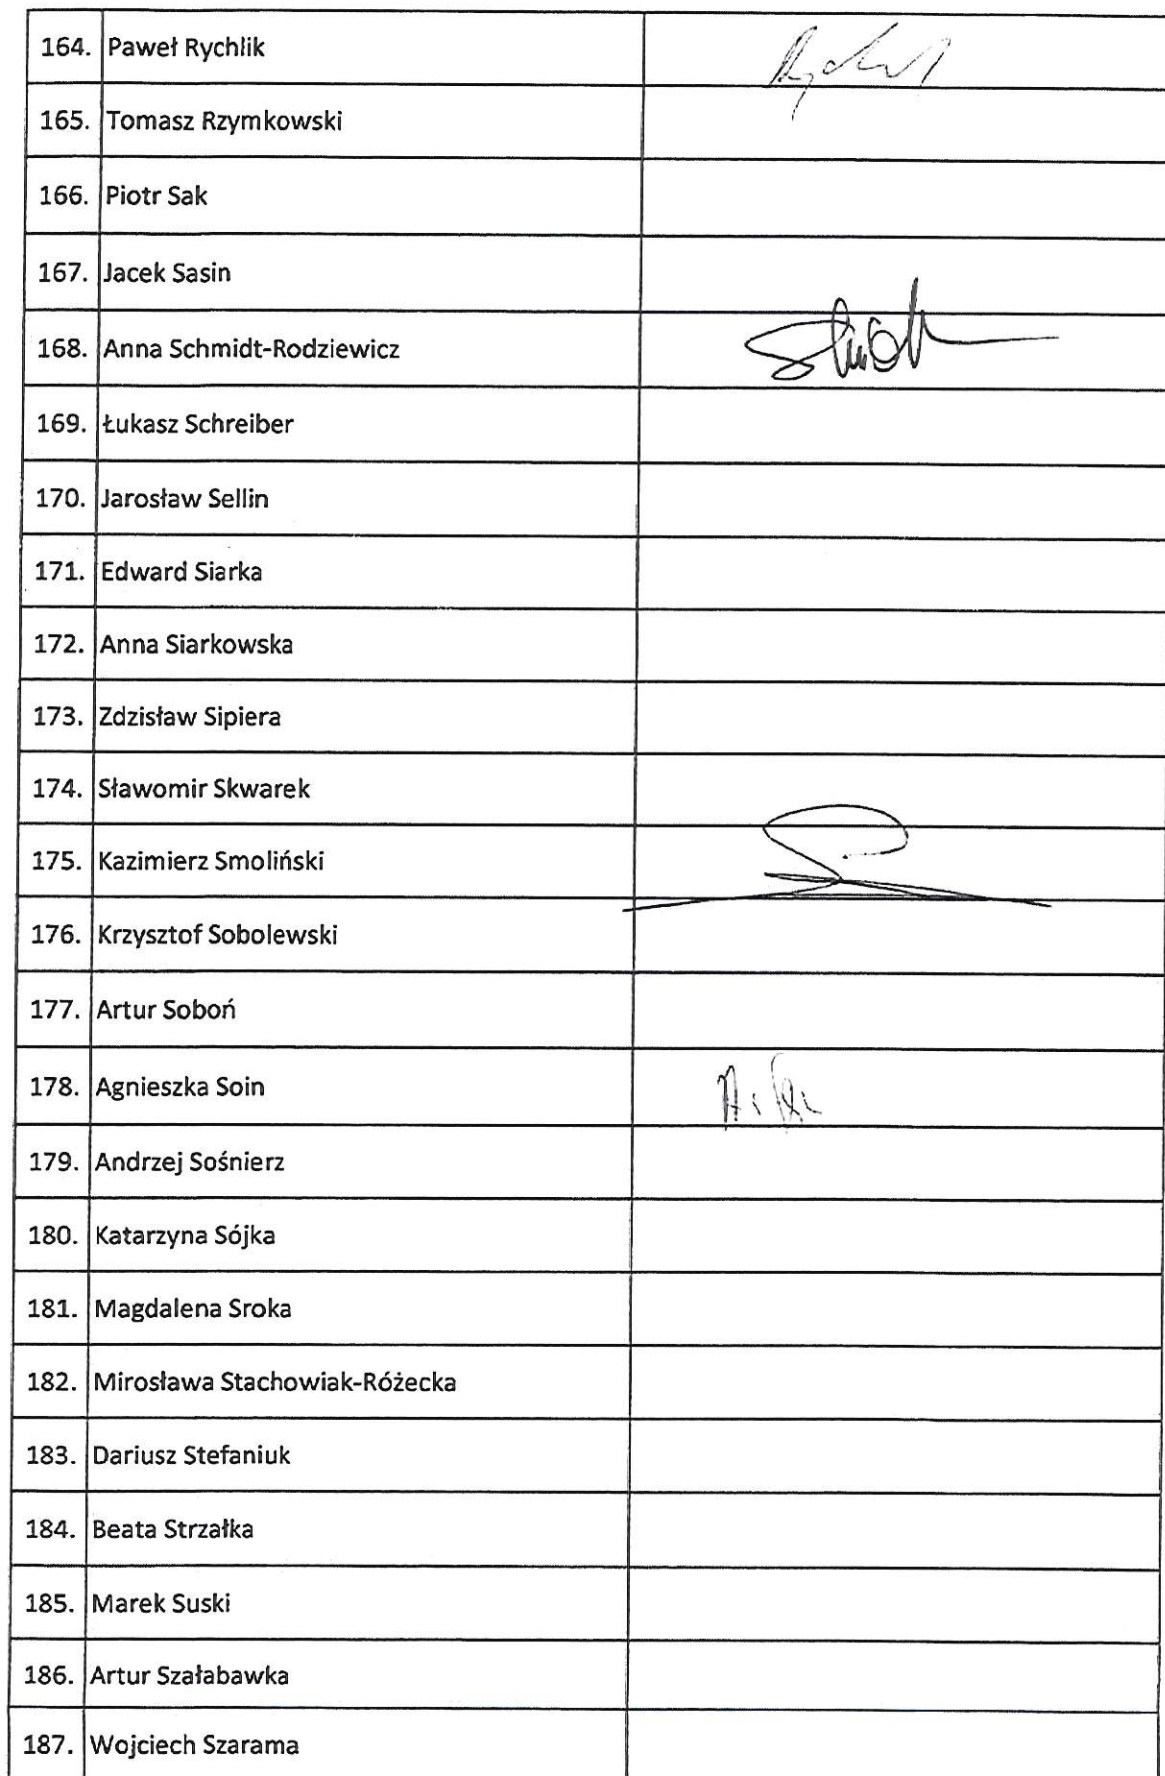 164. Paweł Rychlik
165. Tomasz Rzymkowski
166. Piotr Sak
167. Jacek Sasin
168. Anna Schmidt-Rodziewicz
169. Łukasz Schreiber
170. Jarosław Sellin
171. Edward Siarka
172. Anna Siarkowska
173. Zdzisław Sipiera
174. Sławomir Skwarek
175. Kazimierz Smoliński
176. Krzysztof Sobolewski
177. Artur Soboń
178. Agnieszka Soin
179. Andrzej Sośnierz
180. Katarzyna Sójka
181. Magdalena Sroka
182. Mirosława Stachowiak-Różecka
183. Dariusz Stefaniuk
184. Beata Strzałka
185. Marek Suski
186. Artur Szałabawka
187. Wojciech Szarama